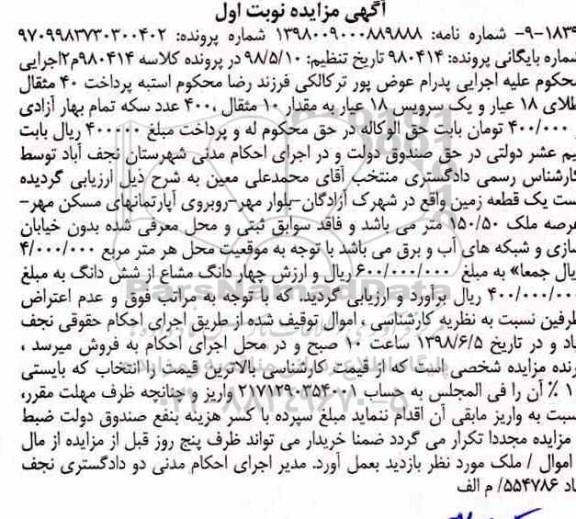 آگهی مزایده نوبت اول
۱۸۳۹-۹- شماره نامه: ۱۳۹۸۰۰۹۰۰۰۸۸۹۸۸۸ شماره پرونده: ۹۷۰۹۹۸۳۷۳۰۳۰۰۴۰۲
شماره بایگانی پرونده: ۹۸۰۴۱۴ تاریخ تنظیم: ۹۸/۵/۱۰ در پرونده کلاسه ۹۸۰۴۱۴م۲اجرایی
محکوم علیه اجرایی پدرام عوض پور ترکالکی فرزند رضا محکوم استبه پرداخت ۴۰ مثقال
طلای ۱۸ عیار و یک سرویس ۱۸ عیار به مقدار ۱۰ مثقال ،۴۰۰ عدد سکه تمام بهار آزادی
۴۰۰/۰۰۰ تومان بابت حق الوکاله در حق محکوم له و پرداخت مبلغ ۴۰۰۰۰۰ ریال بابت
نیم عشر دولتی در حق صندوق دولت و در اجرای احکام مدنی شهرستان نجف آباد توسط
کارشناس رسمی دادگستری منتخب آقای محمدعلی معین به شرح ذیل ارزیابی گردیده
ست یک قطعه زمین واقع در شهرک آزادگان-بلوار مهر-روبروی آپارتمانهای مسکن مهر-
عرصه ملک ۱۵۰/۵۰ متر می باشد و فاقد سوابق ثبتی و محل معرفی شده بدون خیابان
سازی و شبکه های آب و برق می باشد با توجه به موقعیت محل هر متر مربع ۴/۰۰۰/۰۰۰
ریال جمعا» به مبلغ ۶۰۰/۰۰۰/۰۰۰ ریال و ارزش چهار دانگ مشاع از شش دانگ به مبلغ
۴۰۰/۰۰۰/۰۰۰ ریال برآورد و ارزیابی گردید. که با توجه به مراتب فوق و عدم اعتراض
طرفین نسبت به نظریه کارشناسی ، اموال توقیف شده از طریق اجرای احکام حقوقی نجف
باد و در تاریخ ۱۳۹۸/۶/۵ ساعت ۱۰ صبح و در محل اجرای احکام به فروش میرسد ،
رنده مزایده شخصی است که از قیمت کارشناسی بالاترین قیمت را انتخاب که بایستی
۱۰٪ آن را فی المجلس به حساب ۲۱۷۱۲۹۰۳۵۴۰۰۱ واریز و چنانچه ظرف مهلت مقرر،
نسبت به واریز مابقی آن اقدام ننماید مبلغ سپرده با کسر هزینه بنفع صندوق دولت ضبط
مزایده مجددا تکرار می گردد ضمنا خریدار می تواند ظرف پنج روز قبل از مزایده از مال
اموال / ملک مورد نظر بازدید بعمل آورد. مدیر اجرای احکام مدنی دو دادگستری نجف
باد ۵۵۴۷۸۶/ م الف
ParsNamadData